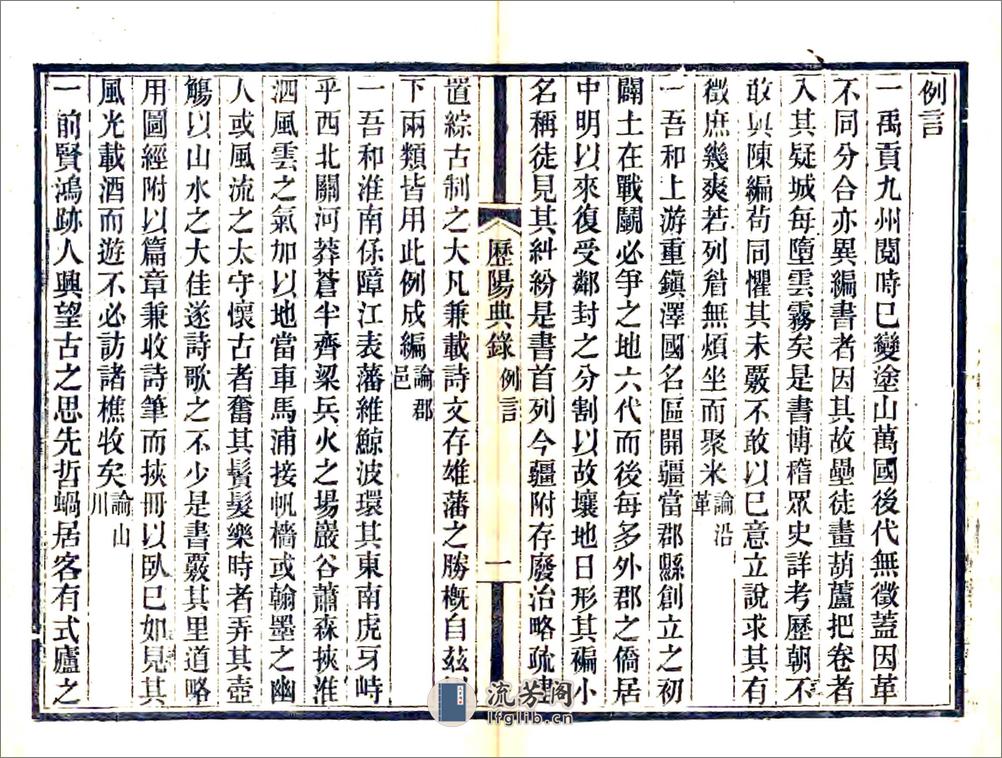 例言
一禹貢九州閱時已變塗山萬國後代無徵蓋因革
不同分合亦異編書者因其故壘徒畫葫蘆把卷者
入其疑城每墮雲霧矣是書博稽眾史詳考歷朝不
敢與陳編苟同懼其未覈不敢以已意立說求其有
徵庶幾爽若列眉無煩坐而聚米論沿革
一吾和上游重鎮澤國名區開疆當郡縣創立之初
闢土在戰鬭必爭之地六代而後每多外郡之僑居
中明以來復受鄰封之分割以故壤地日形其褊小
名稱徒見其糾紛是書首列今疆附存廢治略疏建
歷陽典錄 例言 一
置綜古制之大凡兼載詩文存雄藩之勝概自茲
下兩類皆用此例成編論郡邑
一吾和淮南保障江表藩維鯨波環其東南虎牙峙
乎西北關河莽蒼半齊梁兵火之場巖谷蕭森挾淮
泗風雲之氣加以地當車馬浦接帆檣或翰墨之幽
人或風流之太守懷古者奮其鬚髮樂時者弄其壺
觴以山水之大佳遂詩歌之不少是書覈其里道略
用圖經附以篇章兼收詩筆而挾冊以臥已如見其
風光載酒而遊不必訪諸樵牧矣論山川
一前賢鴻跡人興望古之思先哲蝸居客有式廬之
流芳閣
lfglib.cn